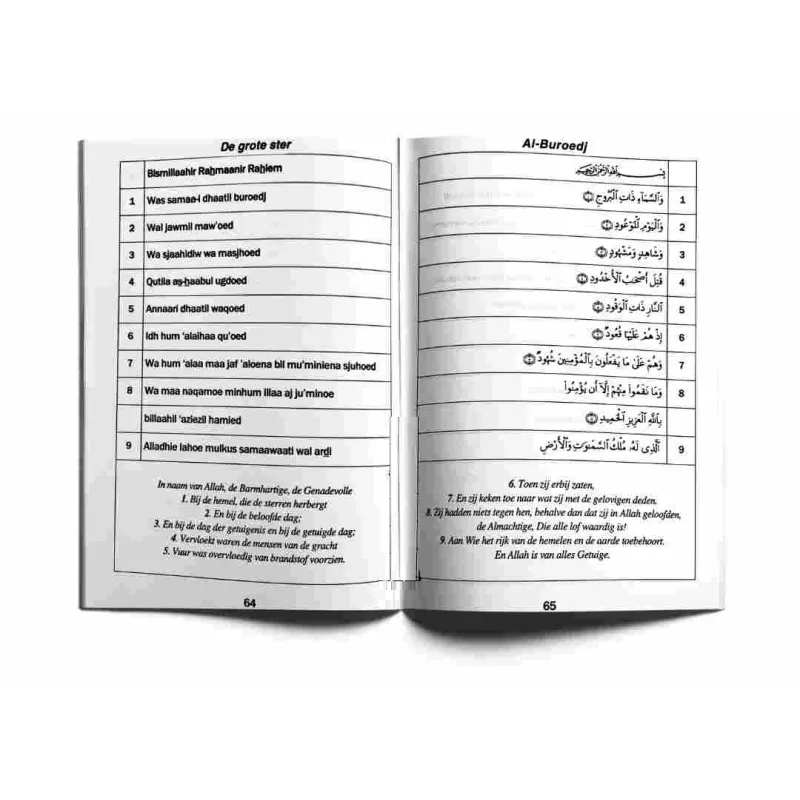 De grote ster
Bismillaahir Raḥmaanir Raḥiem
1 Was samaa-i dhaatil buroedj
2 Wal jawmil maw'oed
3 Wa sjaahidiw wa masjhoed
4 Qutila aṣ-ḥaabul ugdoed
5 Annaari dhaatil waqoed
6 Idh hum 'alaihaa qu'oed
7 Wa hum 'alaa maa jaf 'aloena bil mu'miniena sjuhoed
8 Wa maa naqamoe minhum illaa aj ju'minoe
billaahil 'aziezil hamied
9 Alladhie lahoe mulkus samaawaati wal arḍi
In naam van Allah, de Barmhartige, de Genadevolle
1. Bij de hemel, die de sterren herbergt
2. En bij de beloofde dag;
3. En bij de dag der getuigenis en bij de getuigde dag;
4. Vervloekt waren de mensen van de gracht
5. Vuur was overvloedig van brandstof voorzien.
64
Al-Buroedj
بِسْمِ اللَّهِ الرَّحْمَٰنِ الرَّحِيمِ
وَالسَّمَآءِ ذَاتِ الْبُرُوجِ ۝١ 1
وَالْيَوْمِ الْمَوْعُودِ ۝٢ 2
وَشَاهِدٍ وَمَشْهُودٍ ۝٣ 3
قُتِلَ أَصْحَٰبُ الْأُخْدُودِ ۝٤ 4
النَّارِ ذَاتِ الْوَقُودِ ۝٥ 5
إِذْ هُمْ عَلَيْهَا قُعُودٌ ۝٦ 6
وَهُمْ عَلَىٰ مَا يَفْعَلُونَ بِالْمُؤْمِنِينَ شُهُودٌ ۝٧ 7
وَمَا نَقَمُوا۟ مِنْهُمْ إِلَّآ أَن يُؤْمِنُوا۟ 8
بِاللَّهِ الْعَزِيزِ الْحَمِيدِ ۝٨
الَّذِى لَهُۥ مُلْكُ السَّمَٰوَٰتِ وَالْأَرْضِ 9
6. Toen zij erbij zaten,
7. En zij keken toe naar wat zij met de gelovigen deden.
8. Zij hadden niets tegen hen, behalve dan dat zij in Allah geloofden,
de Almachtige, Die alle lof waardig is!
9. Aan Wie het rijk van de hemelen en de aarde toebehoort.
En Allah is van alles Getuige.
65